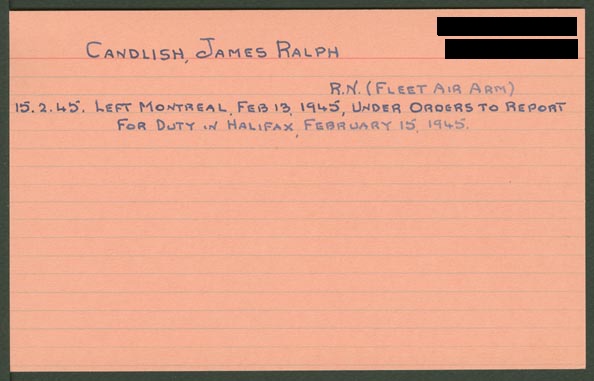 CANDLISH, JAMES RALPH
R.N. (FLEET AIR ARM)
15.2.45. LEFT MONTREAL, FEB 13, 1945, UNDER ORDERS TO REPORT
FOR DUTY IN HALIFAX, FEBRUARY 15, 1945.